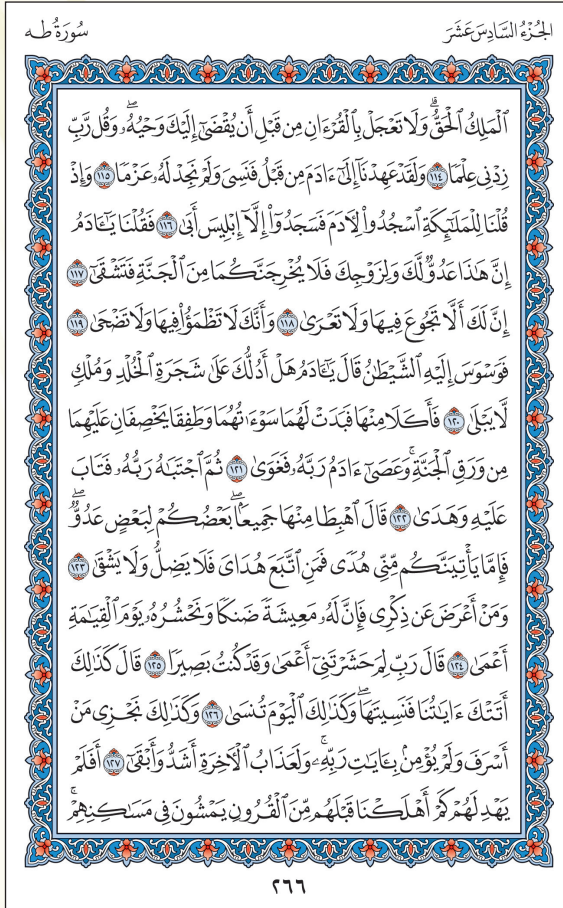 الجُزْءُ السَّادِسَ عَشَرَ
سُورَةُ طه
ٱلْمَلِكُ ٱلْحَقُّۗ وَلَا تَعْجَلْ بِٱلْقُرْءَانِ مِن قَبْلِ أَن يُقْضَىٰٓ إِلَيْكَ وَحْيُهُۥۖ وَقُل رَّبِّ
زِدْنِى عِلْمًا ١١٤ وَلَقَدْ عَهِدْنَآ إِلَىٰٓ ءَادَمَ مِن قَبْلُ فَنَسِىَ وَلَمْ نَجِدْ لَهُۥ عَزْمًا ١١٥ وَإِذْ
قُلْنَا لِلْمَلَٰٓئِكَةِ ٱسْجُدُوا۟ لِءَادَمَ فَسَجَدُوٓا۟ إِلَّآ إِبْلِيسَ أَبَىٰ ١١٦ فَقُلْنَا يَٰٓـَٔادَمُ
إِنَّ هَٰذَا عَدُوٌّ لَّكَ وَلِزَوْجِكَ فَلَا يُخْرِجَنَّكُمَا مِنَ ٱلْجَنَّةِ فَتَشْقَىٰٓ ١١٧
إِنَّ لَكَ أَلَّا تَجُوعَ فِيهَا وَلَا تَعْرَىٰ ١١٨ وَأَنَّكَ لَا تَظْمَؤُا۟ فِيهَا وَلَا تَضْحَىٰ ١١٩
فَوَسْوَسَ إِلَيْهِ ٱلشَّيْطَٰنُ قَالَ يَٰٓـَٔادَمُ هَلْ أَدُلُّكَ عَلَىٰ شَجَرَةِ ٱلْخُلْدِ وَمُلْكٍ
لَّا يَبْلَىٰ ١٢٠ فَأَكَلَا مِنْهَا فَبَدَتْ لَهُمَا سَوْءَٰتُهُمَا وَطَفِقَا يَخْصِفَانِ عَلَيْهِمَا
مِن وَرَقِ ٱلْجَنَّةِۚ وَعَصَىٰٓ ءَادَمُ رَبَّهُۥ فَغَوَىٰ ١٢١ ثُمَّ ٱجْتَبَٰهُ رَبُّهُۥ فَتَابَ
عَلَيْهِ وَهَدَىٰ ١٢٢ قَالَ ٱهْبِطَا مِنْهَا جَمِيعًۢاۖ بَعْضُكُمْ لِبَعْضٍ عَدُوٌّۖ
فَإِمَّا يَأْتِيَنَّكُم مِّنِّى هُدًى فَمَنِ ٱتَّبَعَ هُدَاىَ فَلَا يَضِلُّ وَلَا يَشْقَىٰ ١٢٣
وَمَنْ أَعْرَضَ عَن ذِكْرِى فَإِنَّ لَهُۥ مَعِيشَةً ضَنكًا وَنَحْشُرُهُۥ يَوْمَ ٱلْقِيَٰمَةِ
أَعْمَىٰ ١٢٤ قَالَ رَبِّ لِمَ حَشَرْتَنِىٓ أَعْمَىٰ وَقَدْ كُنتُ بَصِيرًا ١٢٥ قَالَ كَذَٰلِكَ
أَتَتْكَ ءَايَٰتُنَا فَنَسِيتَهَاۖ وَكَذَٰلِكَ ٱلْيَوْمَ تُنسَىٰ ١٢٦ وَكَذَٰلِكَ نَجْزِى مَنْ
أَسْرَفَ وَلَمْ يُؤْمِنۢ بِـَٔايَٰتِ رَبِّهِۦۚ وَلَعَذَابُ ٱلْءَاخِرَةِ أَشَدُّ وَأَبْقَىٰٓ ١٢٧ أَفَلَمْ
يَهْدِ لَهُمْ كَمْ أَهْلَكْنَا قَبْلَهُم مِّنَ ٱلْقُرُونِ يَمْشُونَ فِى مَسَٰكِنِهِمْۗ
٢٦٦